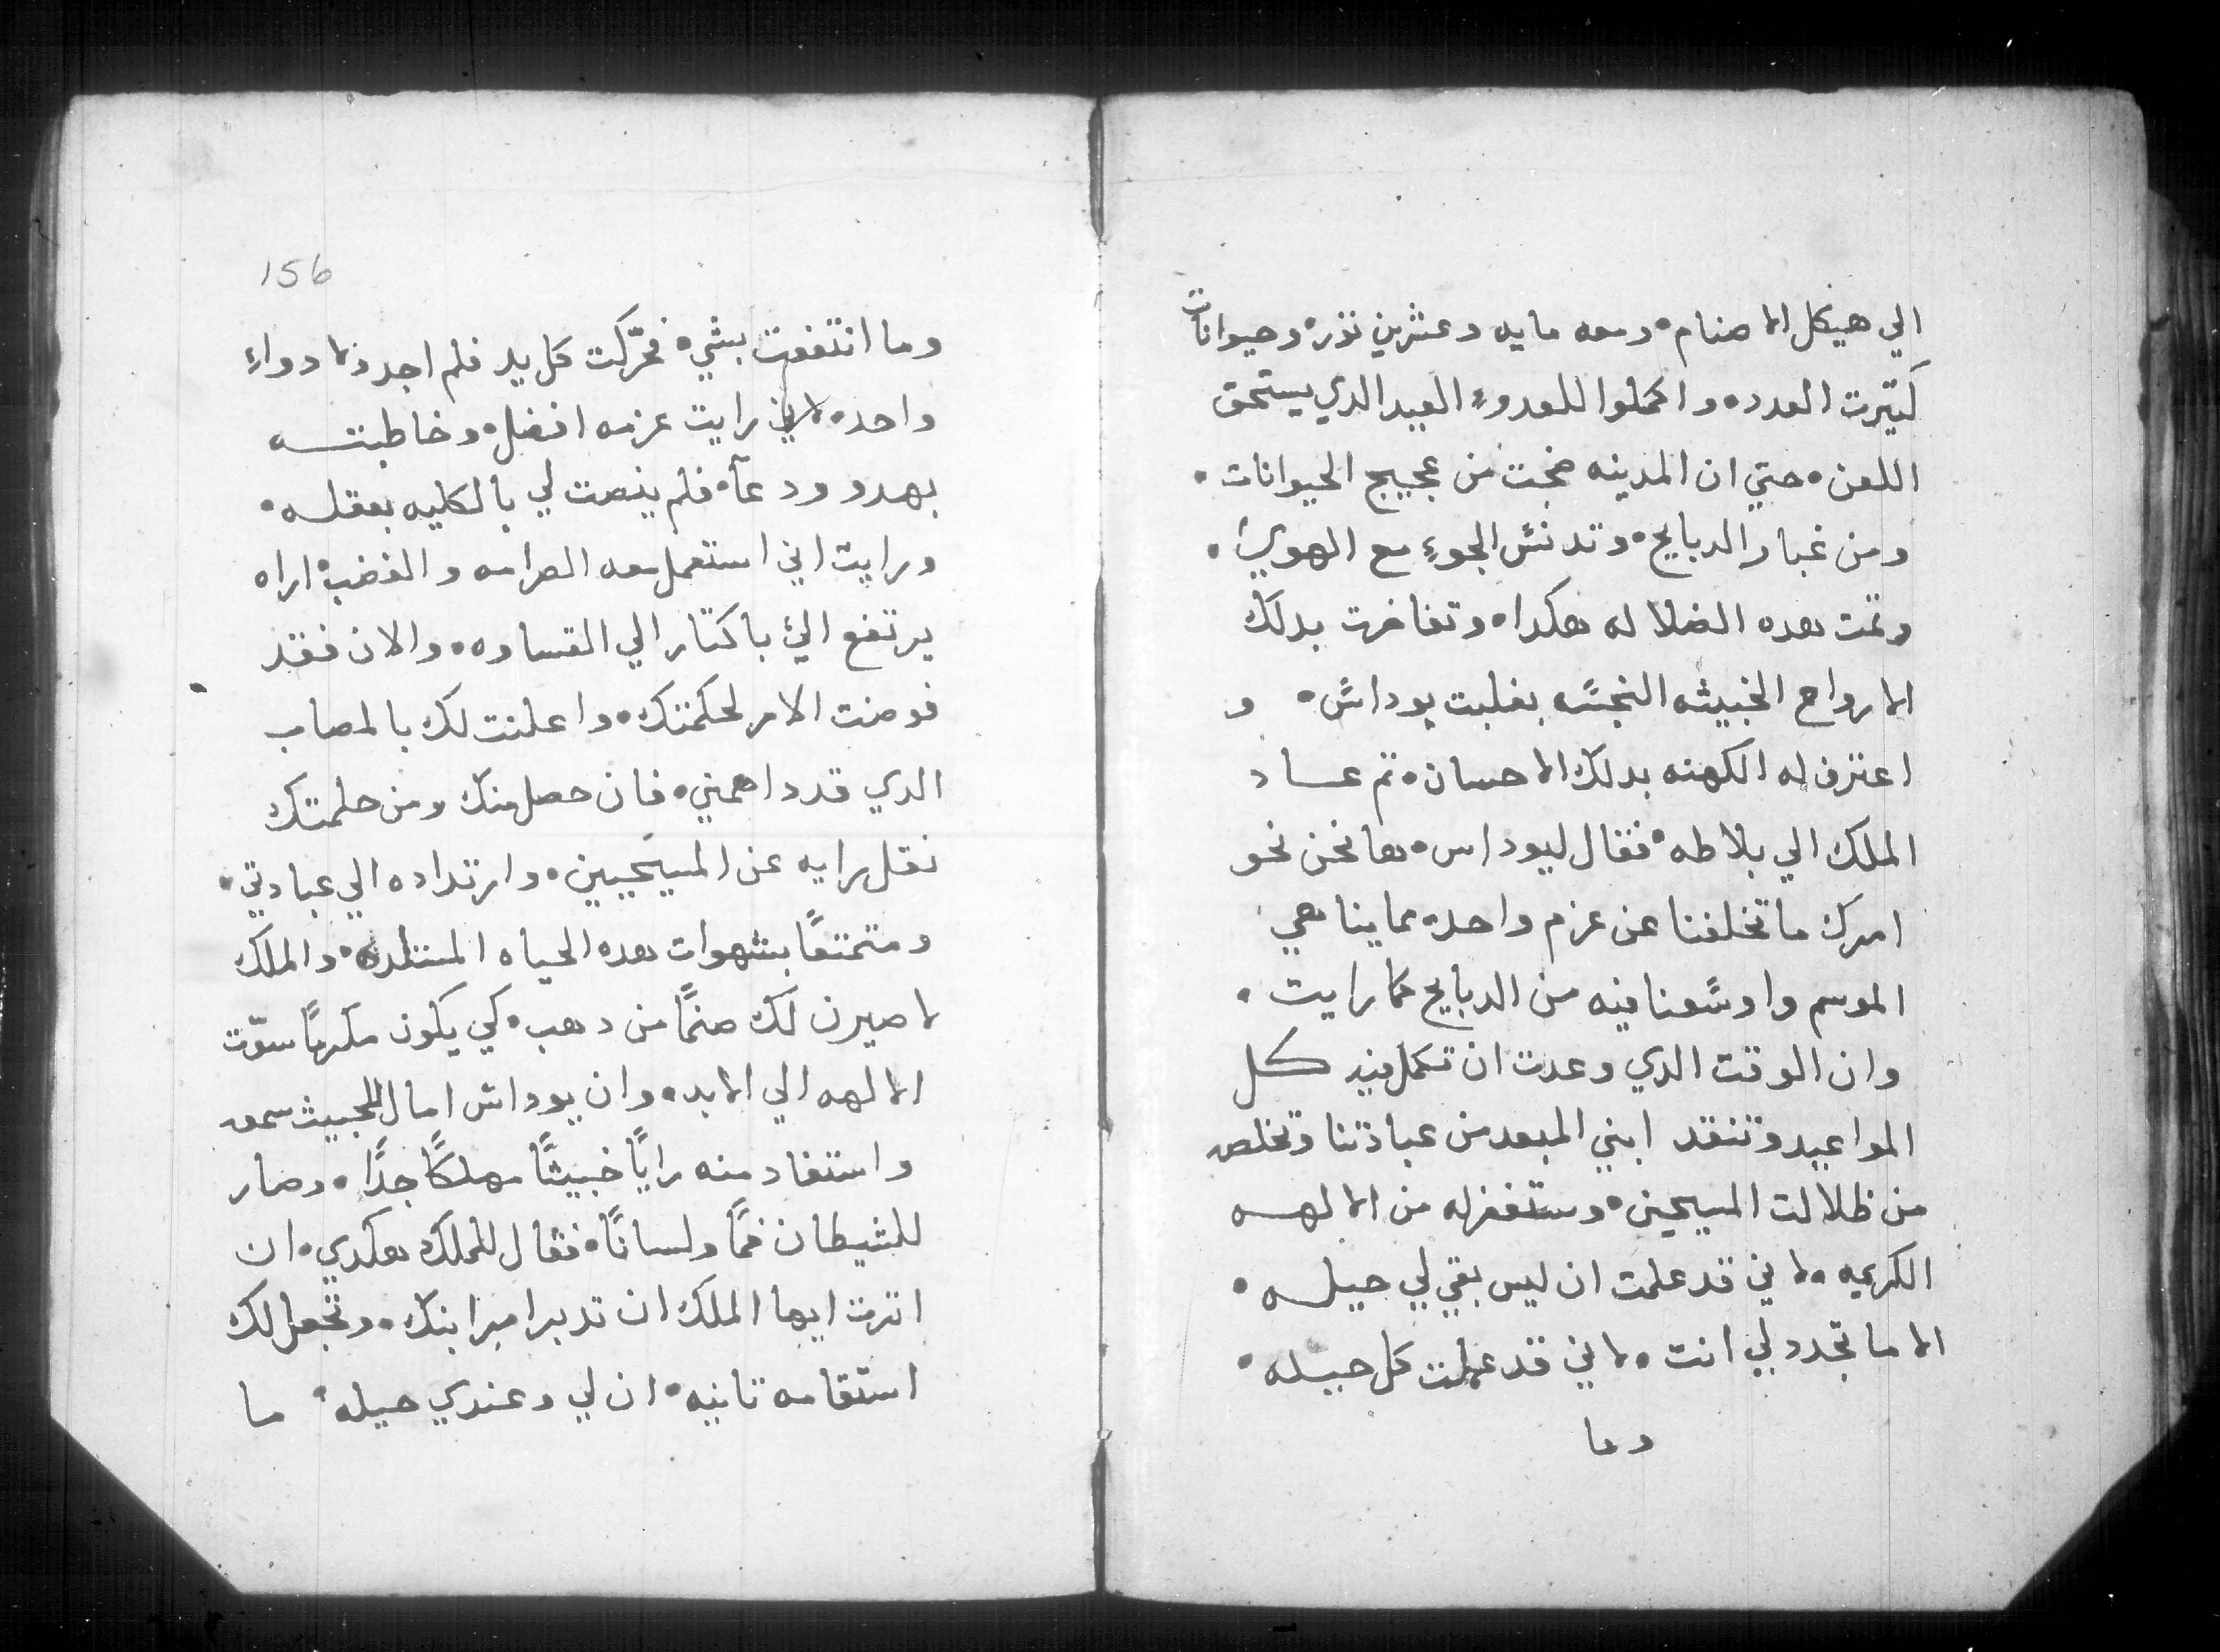 الي هيكل الاصنام • ومعه مايه وعشرين تور • وحيوانات
كتيرت العدد • واكملوا للعدوء العيد الدي يستحق
اللعن • حتي ان المدينه ضجت من عجيج الحيوانات •
ومن غبار الدبايح • وتدنس الجوء مع الهوي •
وتمت هده الضلاله هكدا • وتفاخرت بدلك
الارواح الخبيثه النجسه بغلبت يوداس • و
اعترف له الكهنه بدلك الاحسان • تم عاد
الملك الي بلاطه • فقال ليوداس • ها نحن نحو
امرك ما تخلفنا عن عزم واحد • مماينا هي
الموسم واوسعنا فيه من الدبايح كما رايت •
وان الوقت الدي وعدت ان تكمل فيه كل
المواعيد وتنقد ابني المبعد من عبادتنا وتخلصه
من ظلالت المسيحين • وستغفر له من الالهه
الكريمه • لاني قد علمت ان ليس بقي لي حيله •
الا ما تجدد لي انت • لاني قد عملت كل حيله •
وما
156
وما انتفعت بشي • فحركت كل يد فلم اجد ولا دواء
واحد • لاني رايت عزمه افضل • وخاطبته
بهدو ودعآ • فلم ينصت لي بالكليه بعقله •
ورايت اني استعمل معه الصرامه والغضب • اراه
يرتفع الي باكتار الي القساوه • والان فقد
فوضت الامر لحكمتك • واعلنت لك بالمصاب
الدي قد داهمني • فان حصل منك ومن حلمتك
نقل رايه عن المسيحيين • وارتداده الي عبادتي •
ومتمتعًا بشهوات هده الحياه المنتلده • والملك
لاصيرن لك صنمًا من دهب • كي يكون مكرمًا سوّت
الالهه الي الابد • وان يوداس امال للخبيث سمعه
واستفاد منه رايًا خبيثًا مهلكًا جدًا • وصار
للشيطان فمًا ولسانًا • فقال للملك هكدي • ان
اترت ايها الملك ان تدبر امر ابنك • وتجعل لك
استقامه تانيه • ان لي وعندي حيله • ما